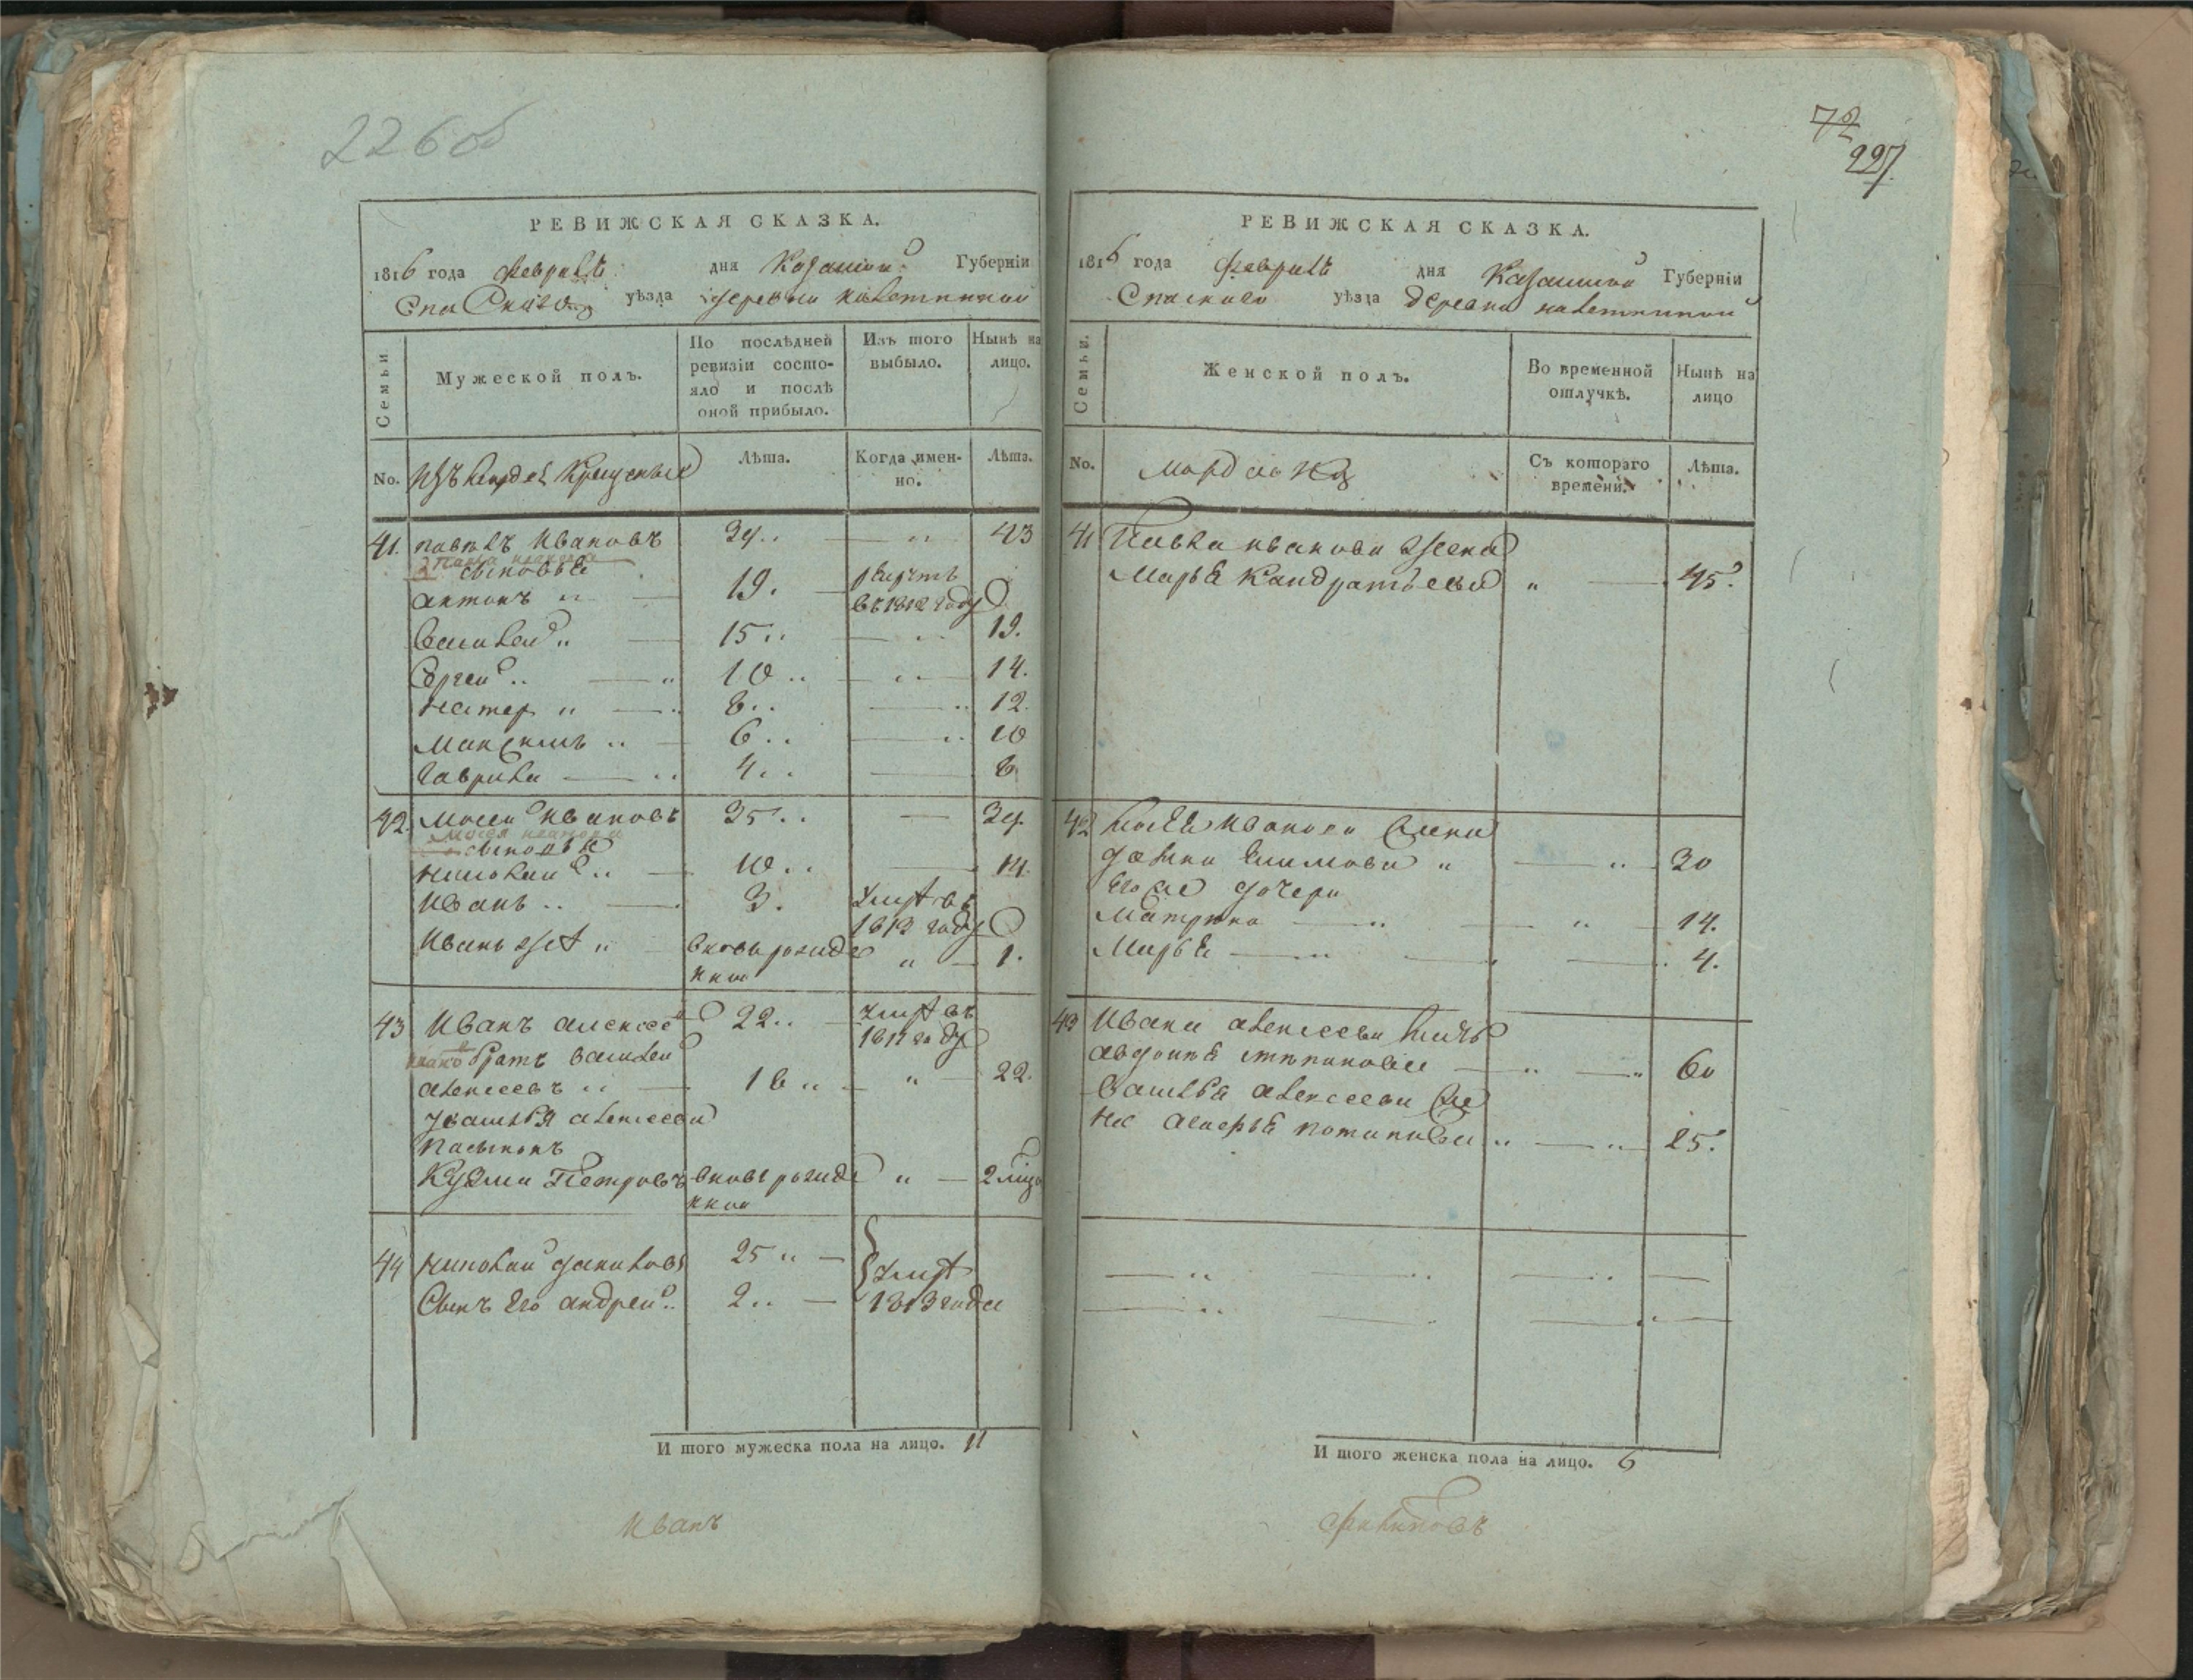 226 об
РЕВИЖСКАЯ СКАЗКА.
1816 года февраля дня Казанской Губерніи
Спасскаго уѣзда деревни
Семьи.
Мужеской полъ.
По послѣдней ревизіи состояло и послѣ оной прибыло.
Изъ того выбыло.
Нынѣ на лицо.
No.
Изъ крещеные
Лѣта.
Когда именно.
Лѣта.
41. павелъ Ивановъ 39 " 43
Павла иванова сыновья
антонъ " 19. въ 1812 году
Василей " 15 " 19.
Сергей " 10 " 14.
нестер " 8 " 12.
Максимъ " 6 " 10
гаврила " 4 " 8
42. Мосей Ивановъ 35 39
Мосея иванова сыновья
николай " 10 " 14.
Иванъ " 3. умре въ 1812 году
Иванъ же " вновь рожденной " 1.
43 Иванъ алексеевъ 22 умре въ 1812 году
братъ василей
алексеевъ " 18 " 22.
У василья алексеева
пасынокъ
Кузма Петровъ вновь рожденной " 2
44 николай даниловъ 25 " умре
Сынъ Его андрей 2 1813 года
И того мужеска пола на лицо. 11
Иванъ
72
227.
РЕВИЖСКАЯ СКАЗКА.
1816 года февраля дня Казанской Губерніи
Спаскаго уѣзда деревни
Семьи.
Женской полъ.
Во временной отлучкѣ.
Нынѣ на лицо
No.
мордва
Съ котораго времени.
Лѣта.
41 Павла иванова жена
Марья Кандратьева " 45.
42 Мосея Иванова жена
" 30
Его же дочери
Матрена " 14.
Марья 4.
43 Ивана алексеева мать
авдотья степанова " 60
Василья алексеева же
на потапова " 25.
И того женска пола на лицо. 6
Филиповъ